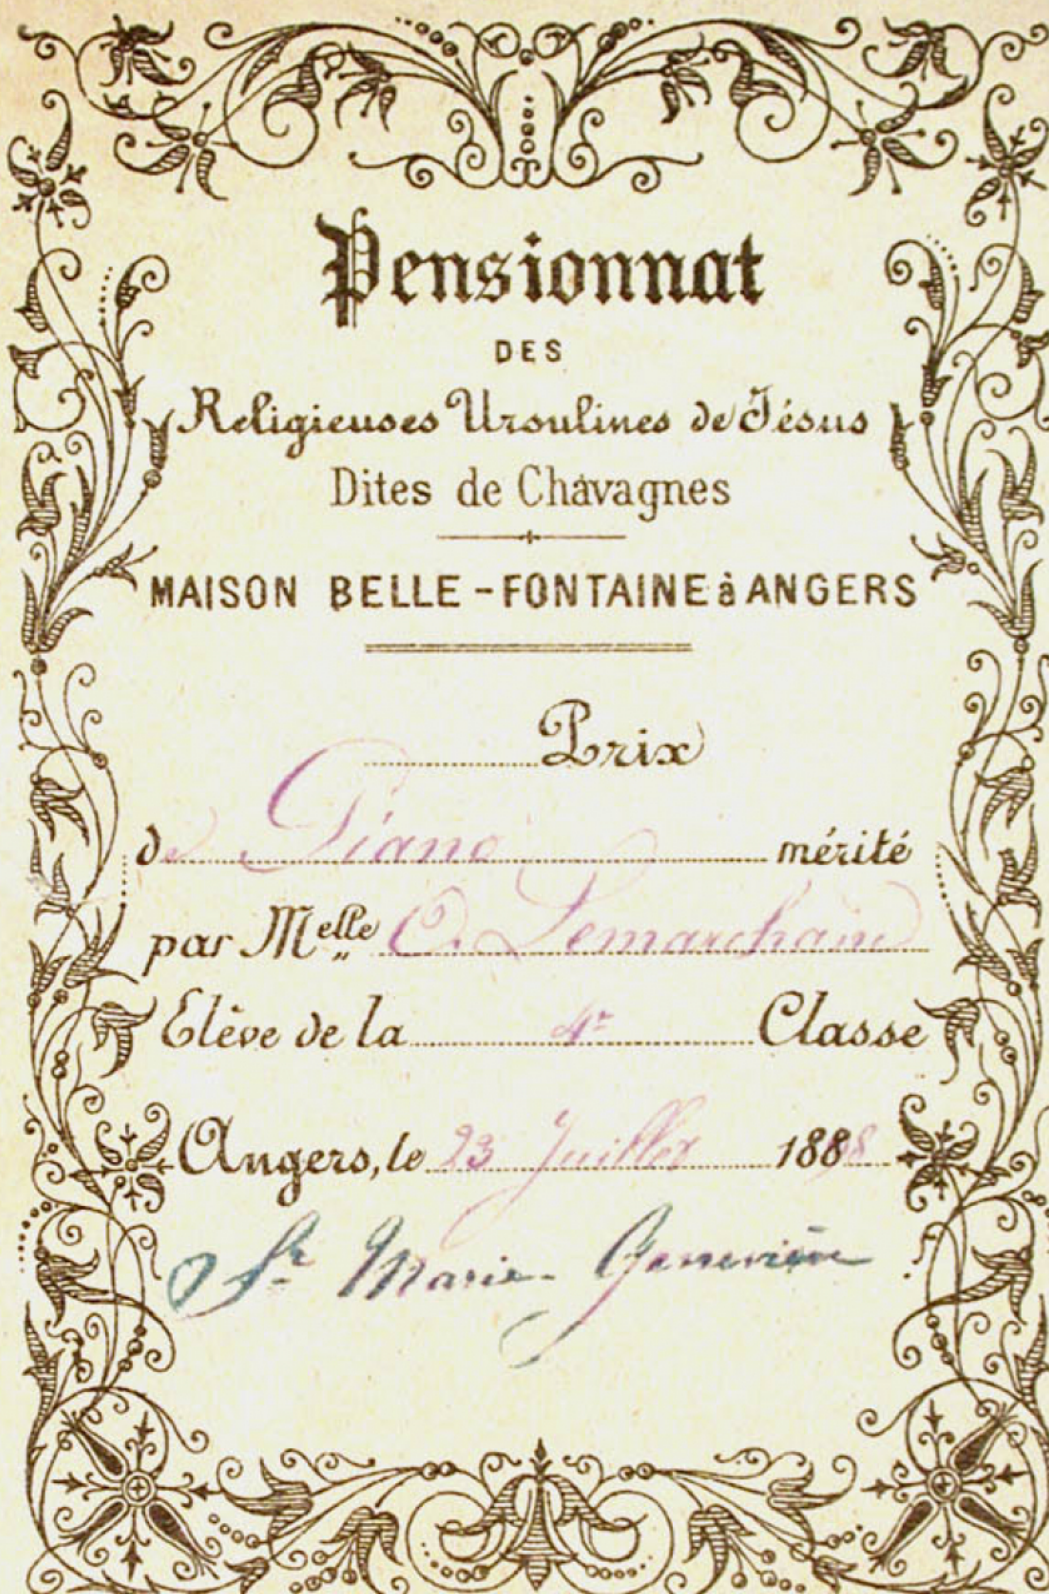 Pensionnat
DES
Religieuses Ursulines de Jésus
Dites de Chavagnes
MAISON BELLE-FONTAINE à ANGERS
Prix
de Piano mérité
par Melle C. Lemarchand
Elève de la 4e Classe
Angers, le 23 Juillet 1888
Sr Marie-Geneviève